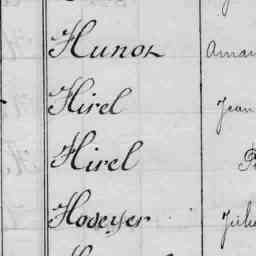 Hunot Aman
Hirel Jean
Hirel
Hodeyer Juli